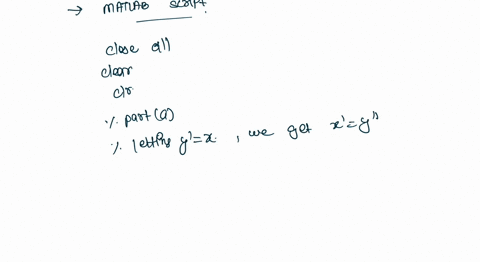 → MATLAB script:
close all
clear
clr
% part(a)
% letting y' = x , we get x' = y''